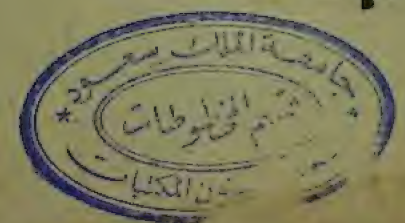 جامعة الملك سعود
قسم المخطوطات
شؤون المكتبات